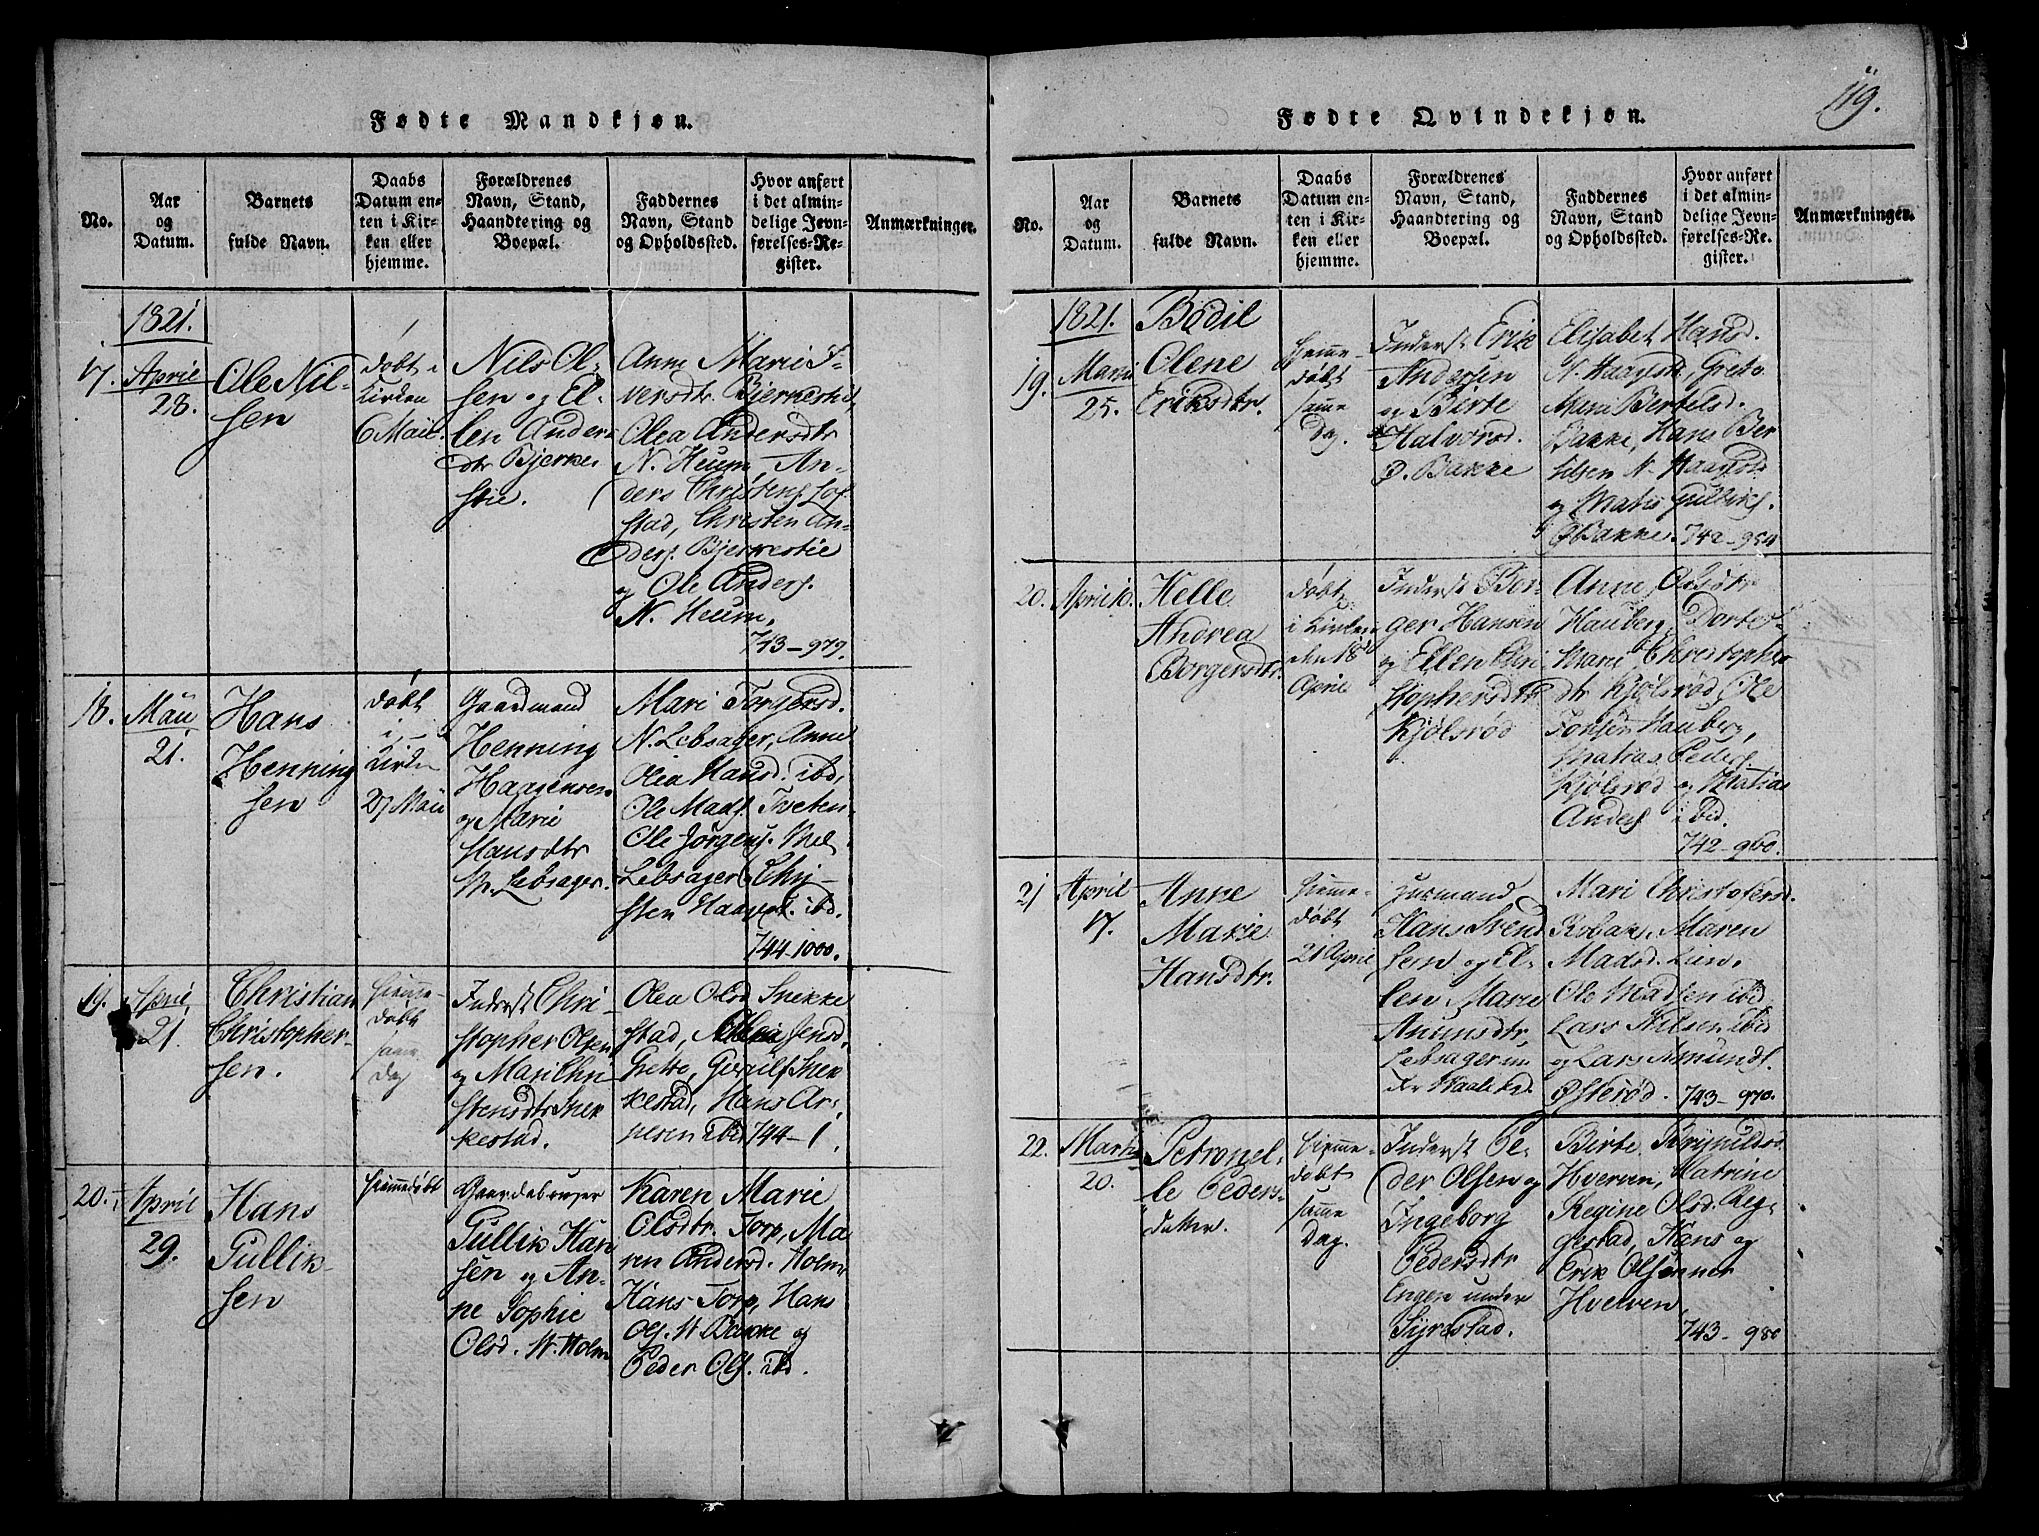 119.
Fødte Mandkjøn.
No.
Aar
og
Datum.
Barnets
fulde Navn.
Daabs
Datum en-
ten i Kir-
ken eller
hjemme.
Forældrenes
Navn, Stand,
Haandtering og
Boepæl.
Faddernes
Navn, Stand
og Opholdssted.
Hvor anført
i det almin-
delige Jevn-
førelses-Re-
gister.
Anmærkninger.
1821.
17.
April
28.
Ole Nil-
sen
døbt i
Kirken
6 Maii
Nils Ol-
sen og El-
len Ander
dtr Bjerke
stie.
Anne Marie I-
versdtr. Bjerkestie,
Olea Andersdtr
N. Heum, An-
ders Christens. Lof-
stad, Christen An-
ders. Bjerkestie
og Ole Anders.
N. Heum.
743-979.
18.
Maii
21.
Hans
Henning
sen
døbt
i
Kirken
27 Maii
Gaardmand
Henning
Haagensen
og Marie
Hansdtr
N. Lebsager.
Mari Torgersd.
N. Lebsager, Anne
Olea Hansd. ibd,
Ole Mads. Tveten
Ole Jørgens. Mel.
Lebsager, Chri-
sten Haagens. ibd.
744-1000.
19.
April
21.
Christian
Christopher-
sen.
hjemme-
døbt
samme
Dag
Inderst Chri-
stopher Olsen
og Mari Chri
stensdtr Snek
kestad.
Olea Olsd Snekke
stad, Jensd.
Grette, Snek
kestad, Hans Ar-
nesen ibid 744-1.
20.
April
29.
Hans
Gullik-
sen
hjemmedøbt
Gaardebruger
Gullik Han
sen og An-
ne Sophie
Olsd. N. Holm
Karen Marie
Olsdtr. Torp, Ma
ren Andersd. Holm
Hans Torp, Hans
Ols. N Bakke og
Peder Ols. ibd.
Fødte Qvindekjøn.
No.
Aar
og
Datum.
Barnets
fulde Navn.
Daabs
Datum en-
ten i Kir-
ken eller
hjemme.
Forældrenes
Navn, Stand,
Haandtering og
Boepæl.
Faddernes
Navn, Stand
og Opholdssted.
Hvor anført
i det almin-
delige Jevn-
førelses-Re-
gister.
Anmærkninger.
1821.
19.
Martii
25.
Bodil
Olene
Eriksdtr.
hjemme-
døbt
samme
Dag.
Inderst Erik
Andersen
og Birte
Halvorsd.
Ø. Bakke
Elisabet Hansd.
N. Haugst, Grete
Marie Bertelsd.
Bakke, Hans Ber
telsen N. Haugst
og Matis Gulbrs.
Ø Bakke. 742-954
20.
April 10.
Helle
Andrea
Borgersdtr.
døbt
i Kirken
den 18
April
Inderst Bor-
ger Hansen
og Ellen Chri
stophersdtr
Kjølsrød
Anne Olsdtr
Hauberg, Dorte
Marie Christophers
dtr Kjølsrød, Ole
Johsen Hauberg,
Matias Peders
Kjølsrød og Matias
Anders ibid.
742-960.
21
April
17.
Anne
Marie
Hansdtr.
hjemme-
døbt
21 April
Huusmand
Hans Svend
sen og El-
len Marie
Amunsdtr,
Lebsager un
der
Mari Christofersd.
Maren
Madsd. Lien,
Ole Madsen ibid
Lars Nilsen ibid
og Lars Amunds.
Østerød. 743-970.
22.
Martii
20.
Petronel-
le Peders
datter.
hjemme-
døbt
samme
Dag.
Inderst Pe-
der Olsen og
Ingeborg
Pedersdtr
Engen under
Syrestad.
Birte
Hverven, Katrine
Regine Olsd. Reg-
gestad, Hans og
Erik Olsenner
Hverven,
743-980